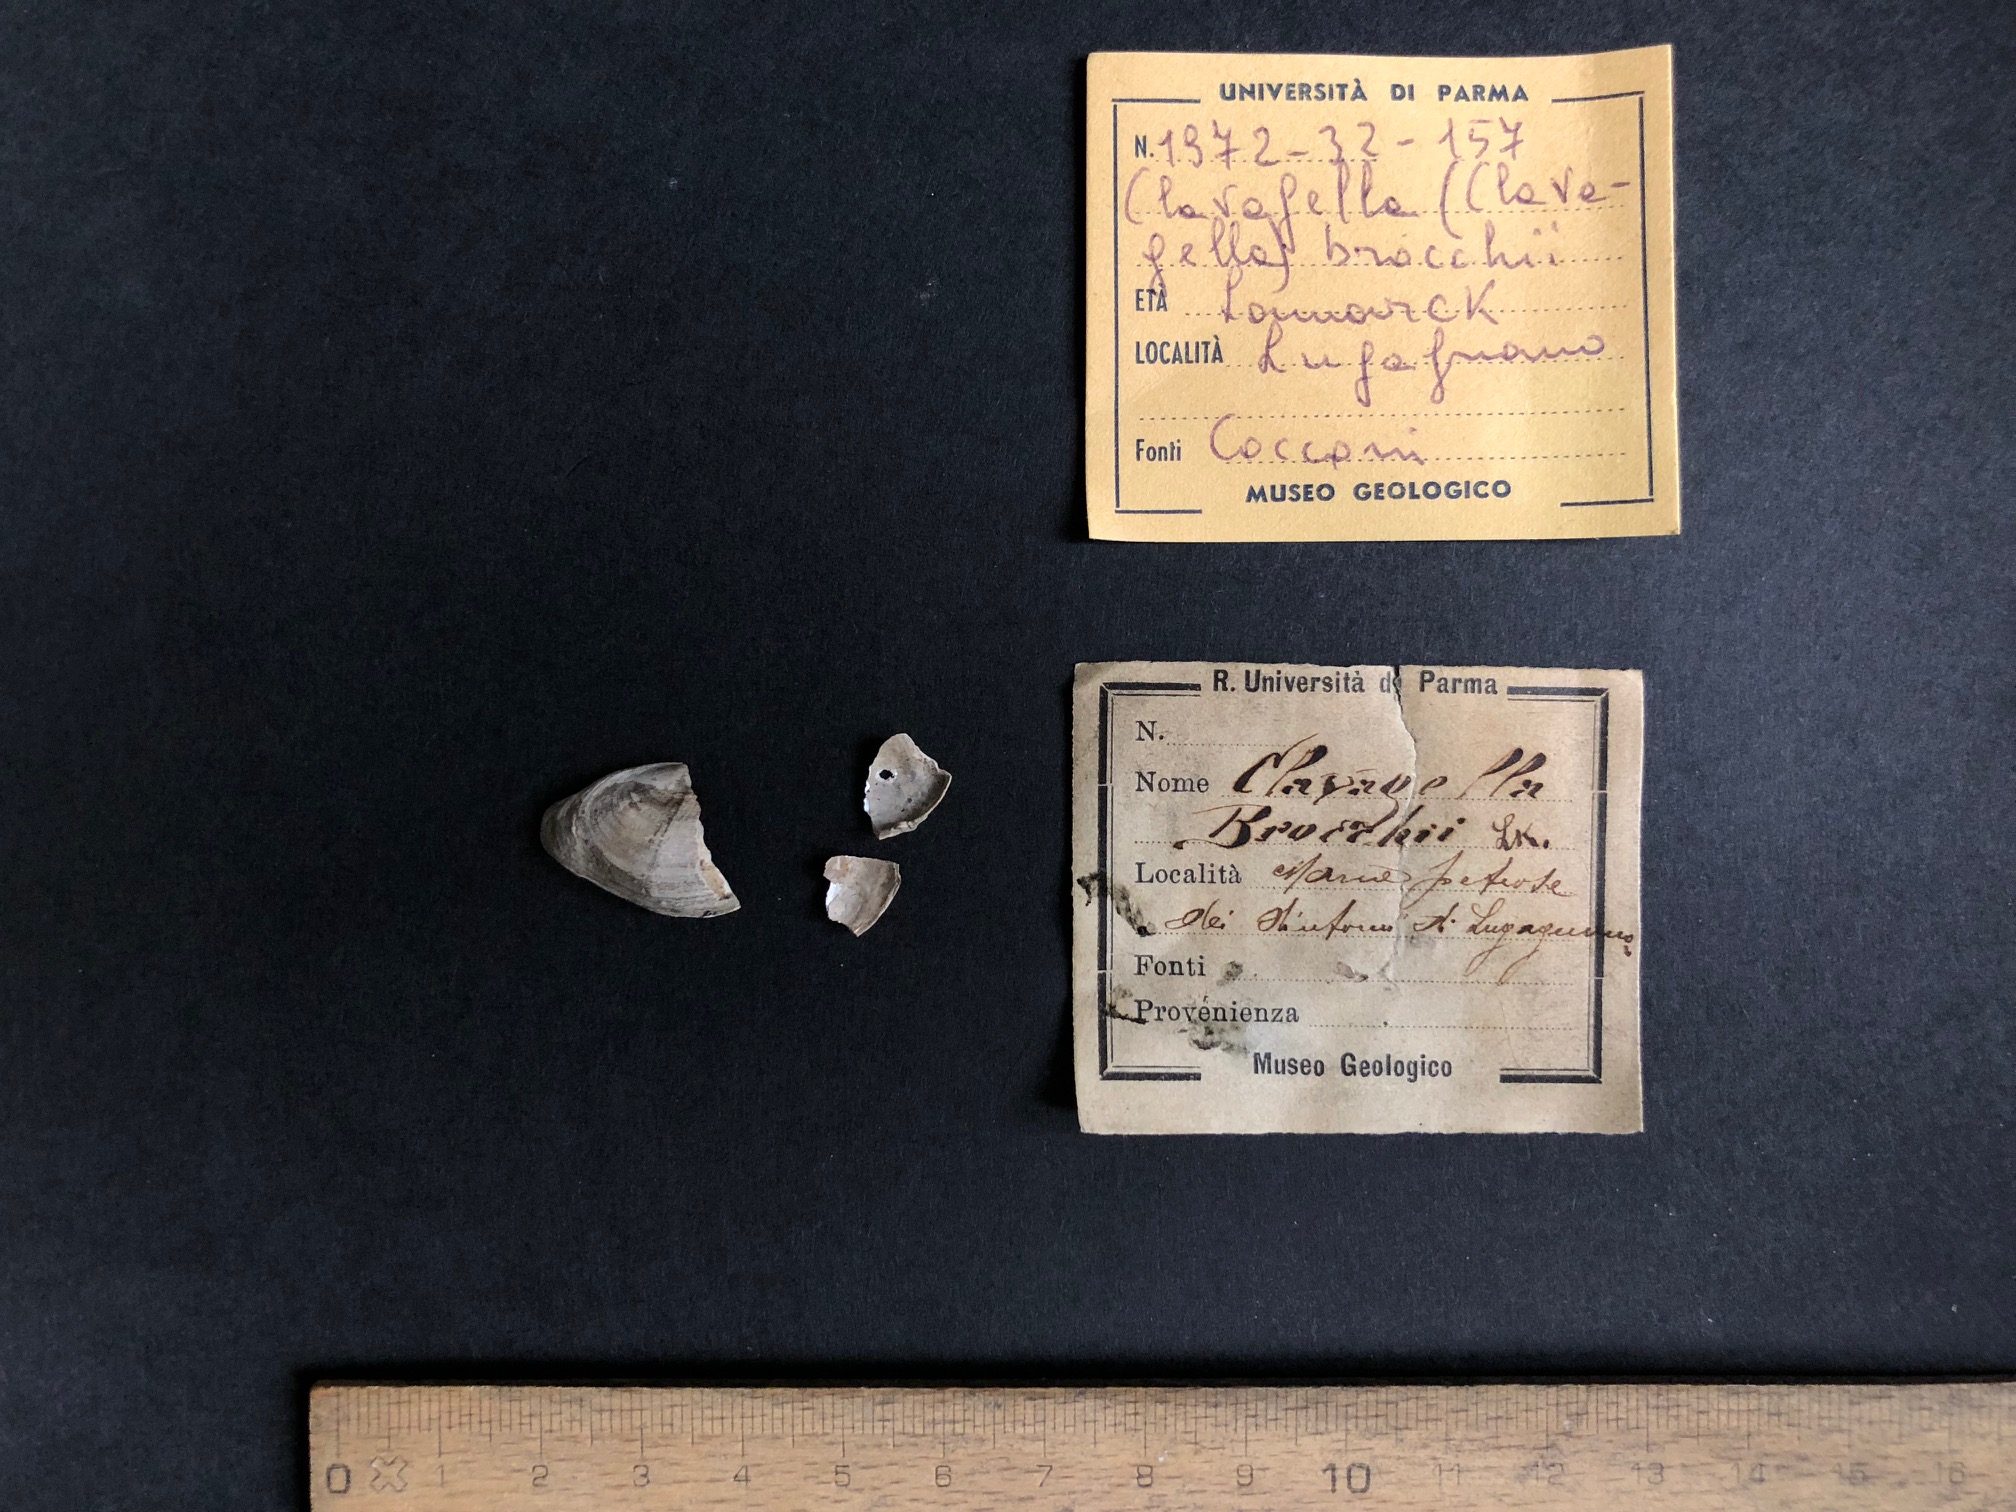 UNIVERSITÀ DI PARMA
N. 1972-32-157
Clavagella (Clava-
gella) brocchii
ETÀ Lamarck
LOCALITÀ Lugagnano
Fonti Cocconi
MUSEO GEOLOGICO
R. Università di Parma
N.
Nome Clavagella
Brocchii Lk.
Località Marne
dei dintorni di Lugagnano
Fonti
Provenienza
Museo Geologico
0 1 2 3 4 5 6 7 8 9 10 11 12 13 14 15 16